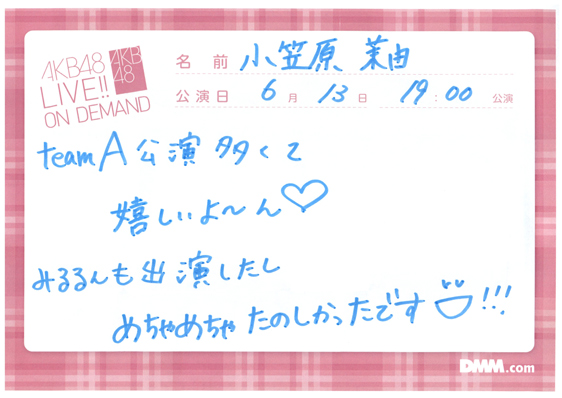 AKB48
LIVE!!
ON DEMAND
AKB
48
名前 小笠原 茉由
公演日 6月13日 19:00 公演
teamA公演多くて
嬉しいよ〜ん♡
みるるんも出演したし
めちゃめちゃたのしかったです!!!
DMM.com